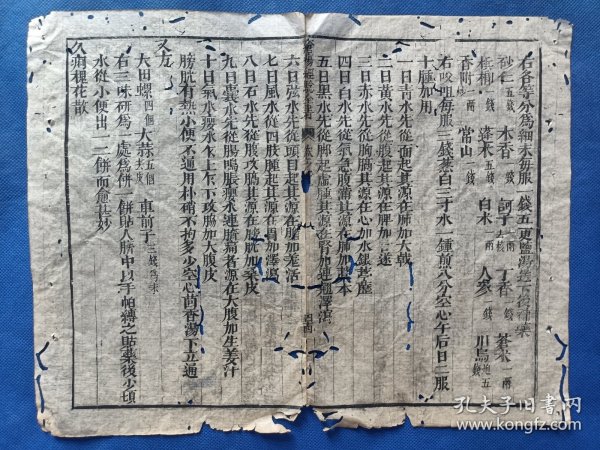 右各等分為細末每服一錢五更鹽湯送下後補藥
砂仁五錢 木香一錢 訶子一兩去核 丁香一錢 蒼术一兩
檳榔一錢 蓬术五錢 白术一兩 人參一錢 川烏炮五錢
香附一兩 常山一錢
右㕮咀每服三錢葱白三寸水一鍾煎八分空心午后日二服
十腫加用
一曰青水先從面起其源在肺加大戟
二曰黃水先從腹起其源在脾加
三曰赤水先從胸膈其源在心加
四曰白水先從氣急腹滿其源在肺加藁本
五曰黑水先從脚起虛腫其源在腎加連翹澤瀉
六曰弦水先從頭目起其源在膽加羗活
七曰風水先從四肢腫起其源在胃加澤瀉
八曰石水先從腹攻膈其源在膀胱加桑皮
九曰氣水先從腸鳴脹氣水連臍痛其源在大腹加生姜汁
十曰氣水瘦水或上或下攻膈加大腹皮
膀胱有熱小便不通用朴硝不拘多少空心茴香湯下立通
又方
大田螺四個 大蒜五個 車前子三錢為末
右三味研為一處為餅一餅貼入臍中以手帕縛之貼藥後少頃
水從小便出一二餅而愈甚妙
久瀉稷花散
孔夫子旧书网
www.kongfz.com